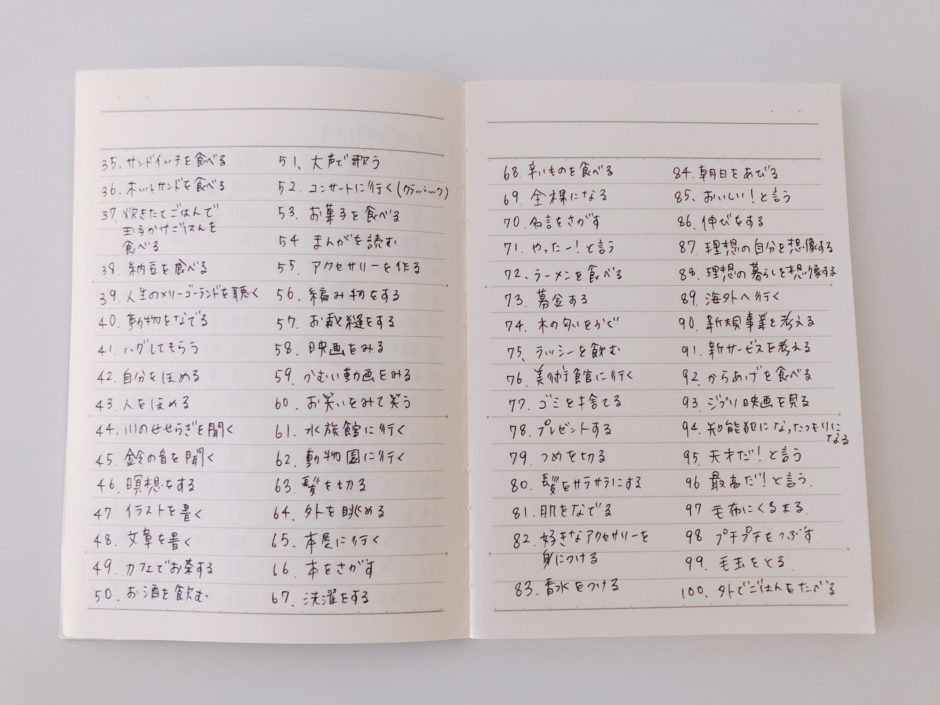 35. サンドイッチを食べる
36. ホットサンドを食べる
37. 炊きたてごはんで
玉子かけごはんを
食べる
38. 納豆を食べる
39. 人生のメリーゴーランドを聴く
40. 動物をなでる
41. ハグしてもらう
42. 自分をほめる
43. 人をほめる
44. 川のせせらぎを聞く
45. 鈴の音を聞く
46. 瞑想をする
47. イラストを書く
48. 文章を書く
49. カフェでお茶する
50. お酒を飲む
51. 大声で歌う
52. コンサートに行く(クラッシック)
53. お菓子を食べる
54. まんがを読む
55. アクセサリーを作る
56. 編み物をする
57. お裁縫をする
58. 映画をみる
59. かわいい動画をみる
60. お笑いをみて笑う
61. 水族館に行く
62. 動物園に行く
63. 髪を切る
64. 外を眺める
65. 本屋に行く
66. 本をさがす
67. 洗濯をする
68. 辛いものを食べる
69. 全裸になる
70. 名言をさがす
71. やったー!と言う
72. ラーメンを食べる
73. 募金する
74. 木の匂いをかぐ
75. ラッシーを飲む
76. 美術館に行く
77. ゴミを捨てる
78. プレゼントする
79. つめを切る
80. 髪をサラサラにする
81. 肌をなでる
82. 好きなアクセサリーを
身につける
83. 香水をつける
84. 朝日をあびる
85. おいしい!と言う
86. 伸びをする
87. 理想の自分を想像する
88. 理想の暮らしを想像する
89. 海外へ行く
90. 新規事業を考える
91. 新サービスを考える
92. からあげを食べる
93. ジブリ映画を見る
94. 知能犯になったつもりに
なる
95. 天才だ!と言う
96. 最高だ!と言う.
97. 毛布にくるまる.
98. プチプチをつぶす
99. 毛玉をとる.
100. 外でごはんをたべる